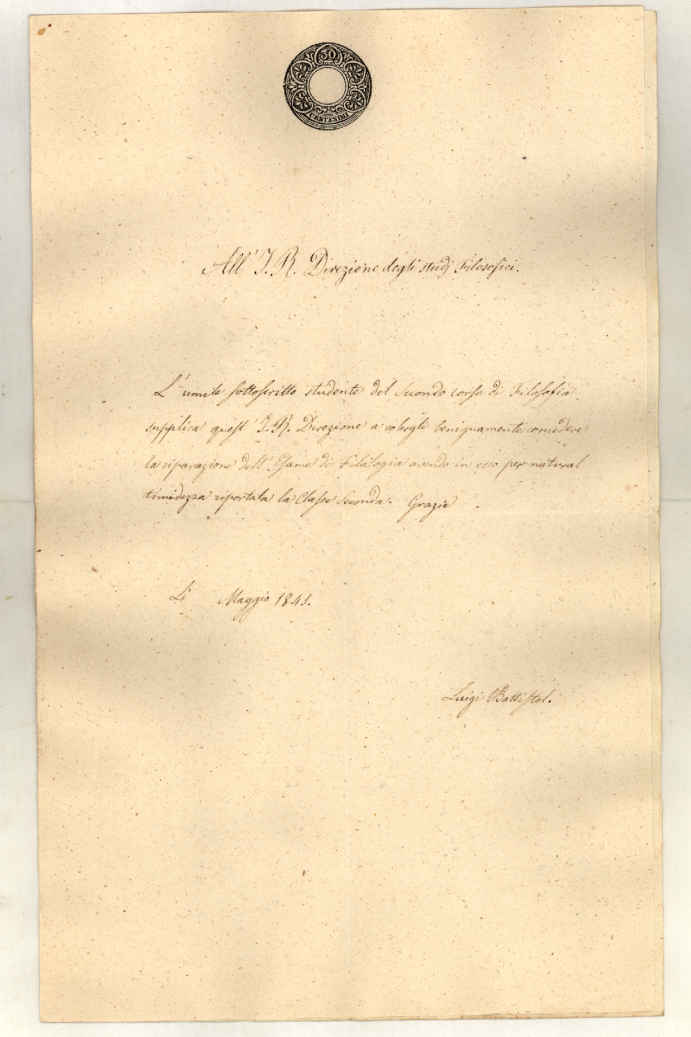 30
CENTESIMI
All' I. R. Direzione degli studj Filosofici.
L' umile sottoscritto studente del Secondo corso di Filosofia
supplica quest' I. R. Direzione a volergli benignamente concedere
la riparazione dell' Esame di Filologia avendo in esso per natural
timidezza riportata la Classe Seconda. Grazie
Li Maggio 1843.
Luigi Battistel.